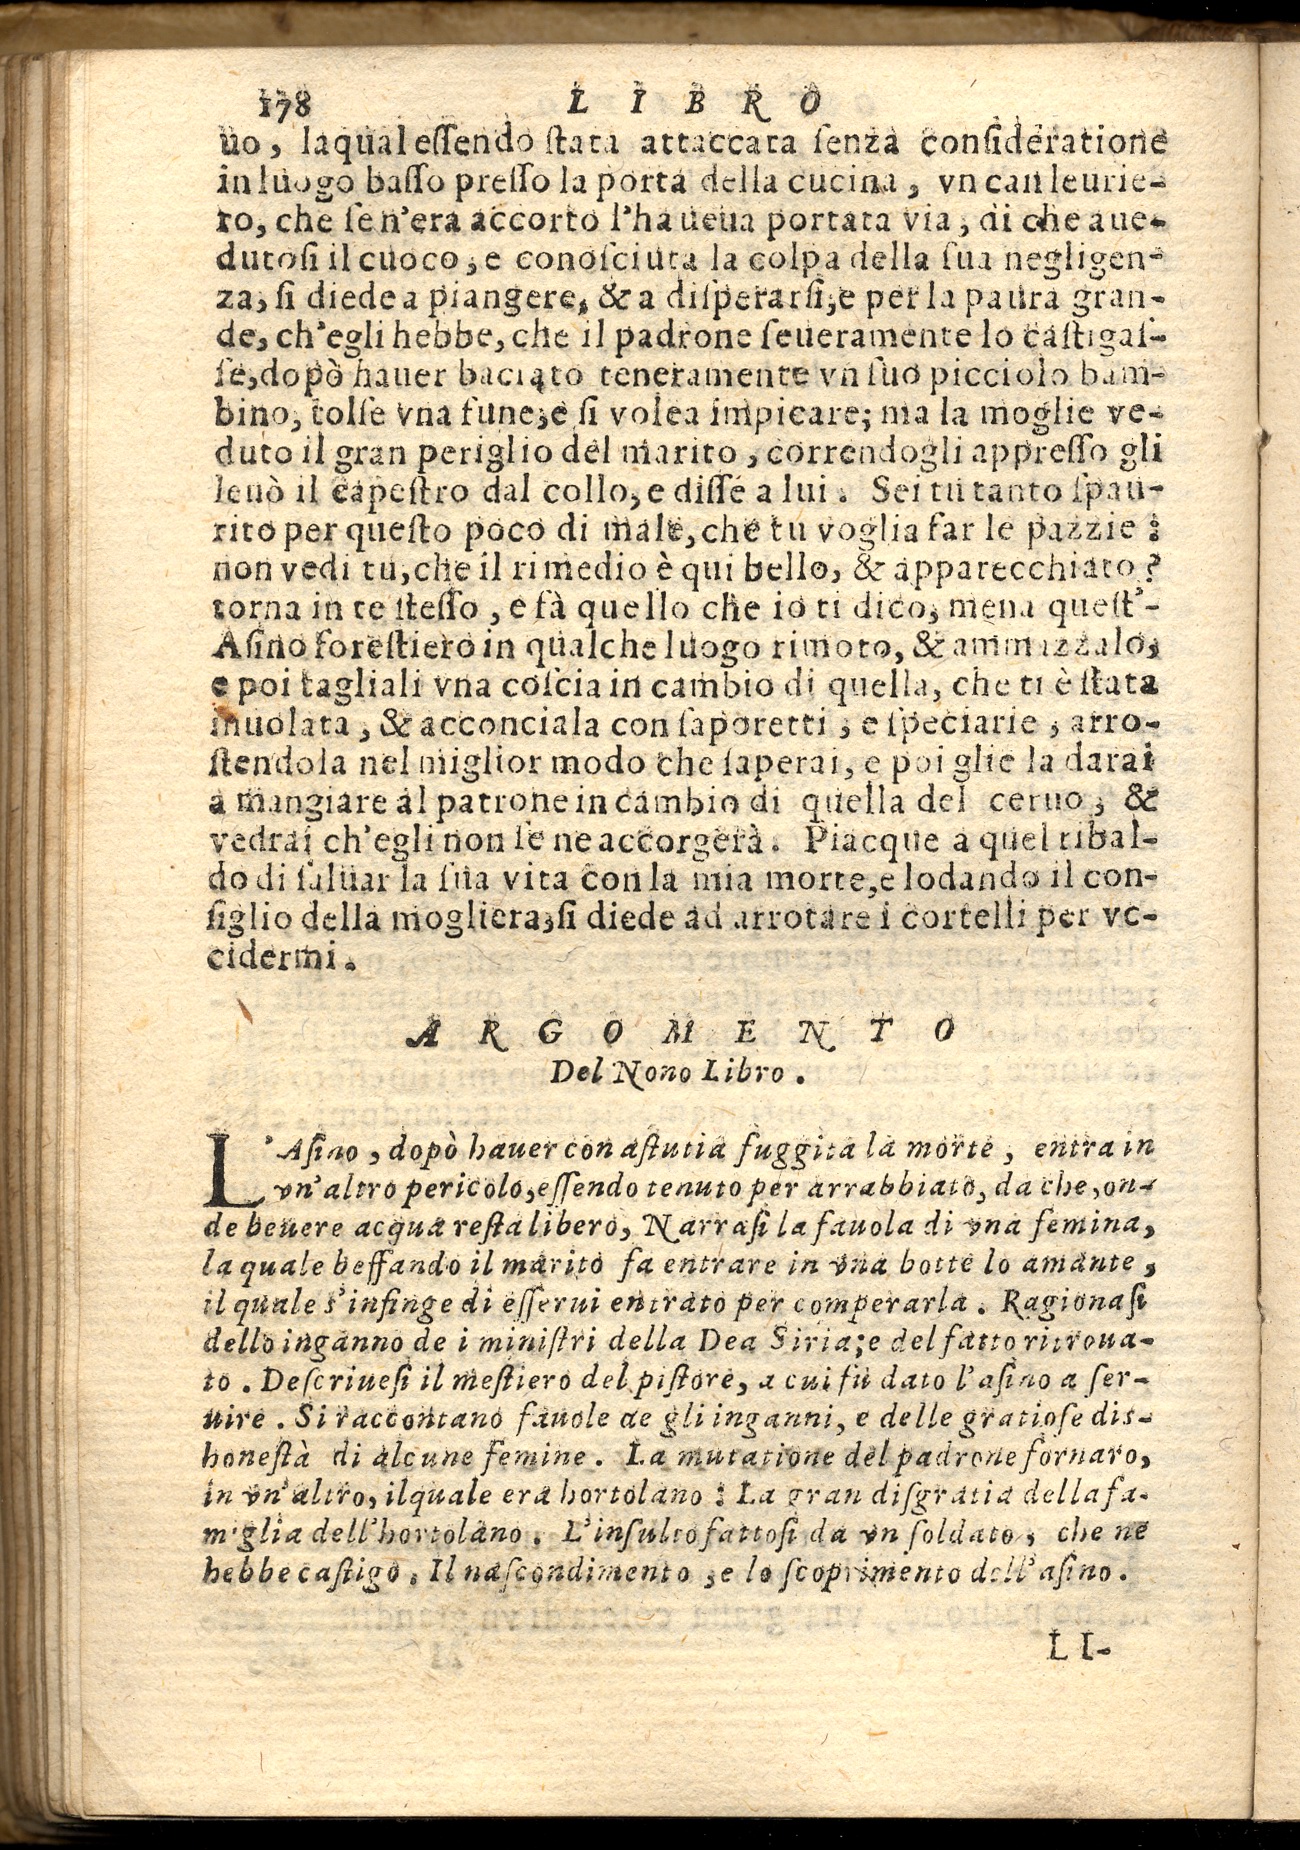 178 LIBRO
uo, laqual essendo stata attaccata senza consideratione
in luogo basso presso la porta della cucina, vn can leurie-
ro, che se n'era accorto l'haueua portata via, di che aue-
dutosi il cuoco, e conosciuta la colpa della sua negligen-
za, si diede a piangere, & a disperarsi, e per la paura gran-
de, ch'egli hebbe, che il padrone seueramente lo castigas-
se, dopò hauer baciato teneramente vn suo picciolo bam-
bino, tolse vna fune, e si volea impicare; ma la moglie ve-
duto il gran periglio del marito, correndogli appresso gli
leuò il capestro dal collo, e disse a lui. Sei tu tanto spau-
rito per questo poco di male, che tu voglia far le pazzie?
non vedi tu, che il rimedio è qui bello, & apparecchiato?
torna in te stesso, e fà quello che io ti dico, mena quest'-
Asino forestiero in qualche luogo rimoto, & ammazzalo,
e poi tagliali vna coscia in cambio di quella, che ti è stata
inuolata, & acconciala con saporetti, e speciarie, arro-
stendola nel miglior modo che saperai, e poi glie la darai
a mangiare al patrone in cambio di quella del ceruo, &
vedrai ch'egli non se ne accorgerà. Piacque a quel ribal-
do di saluar la sua vita con la mia morte, e lodando il con-
siglio della mogliera, si diede ad arrotare i cortelli per vc-
cidermi.
ARGOMENTO
Del Nono Libro.
L'Asino, dopò hauer con astutia fuggita la morte, entra in
vn'altro pericolo, essendo tenuto per arrabbiato, da che, on-
de beuere acqua resta libero, Narrasi la fauola di vna femina,
la quale beffando il marito fa entrare in vna botte lo amante,
il quale s'infinge di esserui entrato per comperarla. Ragionasi
dello inganno de i ministri della Dea Siria; e del fatto ritroua-
to. Descriuesi il mestiero del pistore, a cui fù dato l'asino a ser-
uire. Si raccontano fauole de gli inganni, e delle gratiose dis-
honestà di alcune femine. La mutatione del padrone fornaro,
in vn'altro, ilquale era hortolano: La gran disgratia della fa-
miglia dell'hortolano. L'insulto fattosi da vn soldato, che ne
hebbe castigo. Il nascondimento, e lo scoprimento dell'asino.
LI-